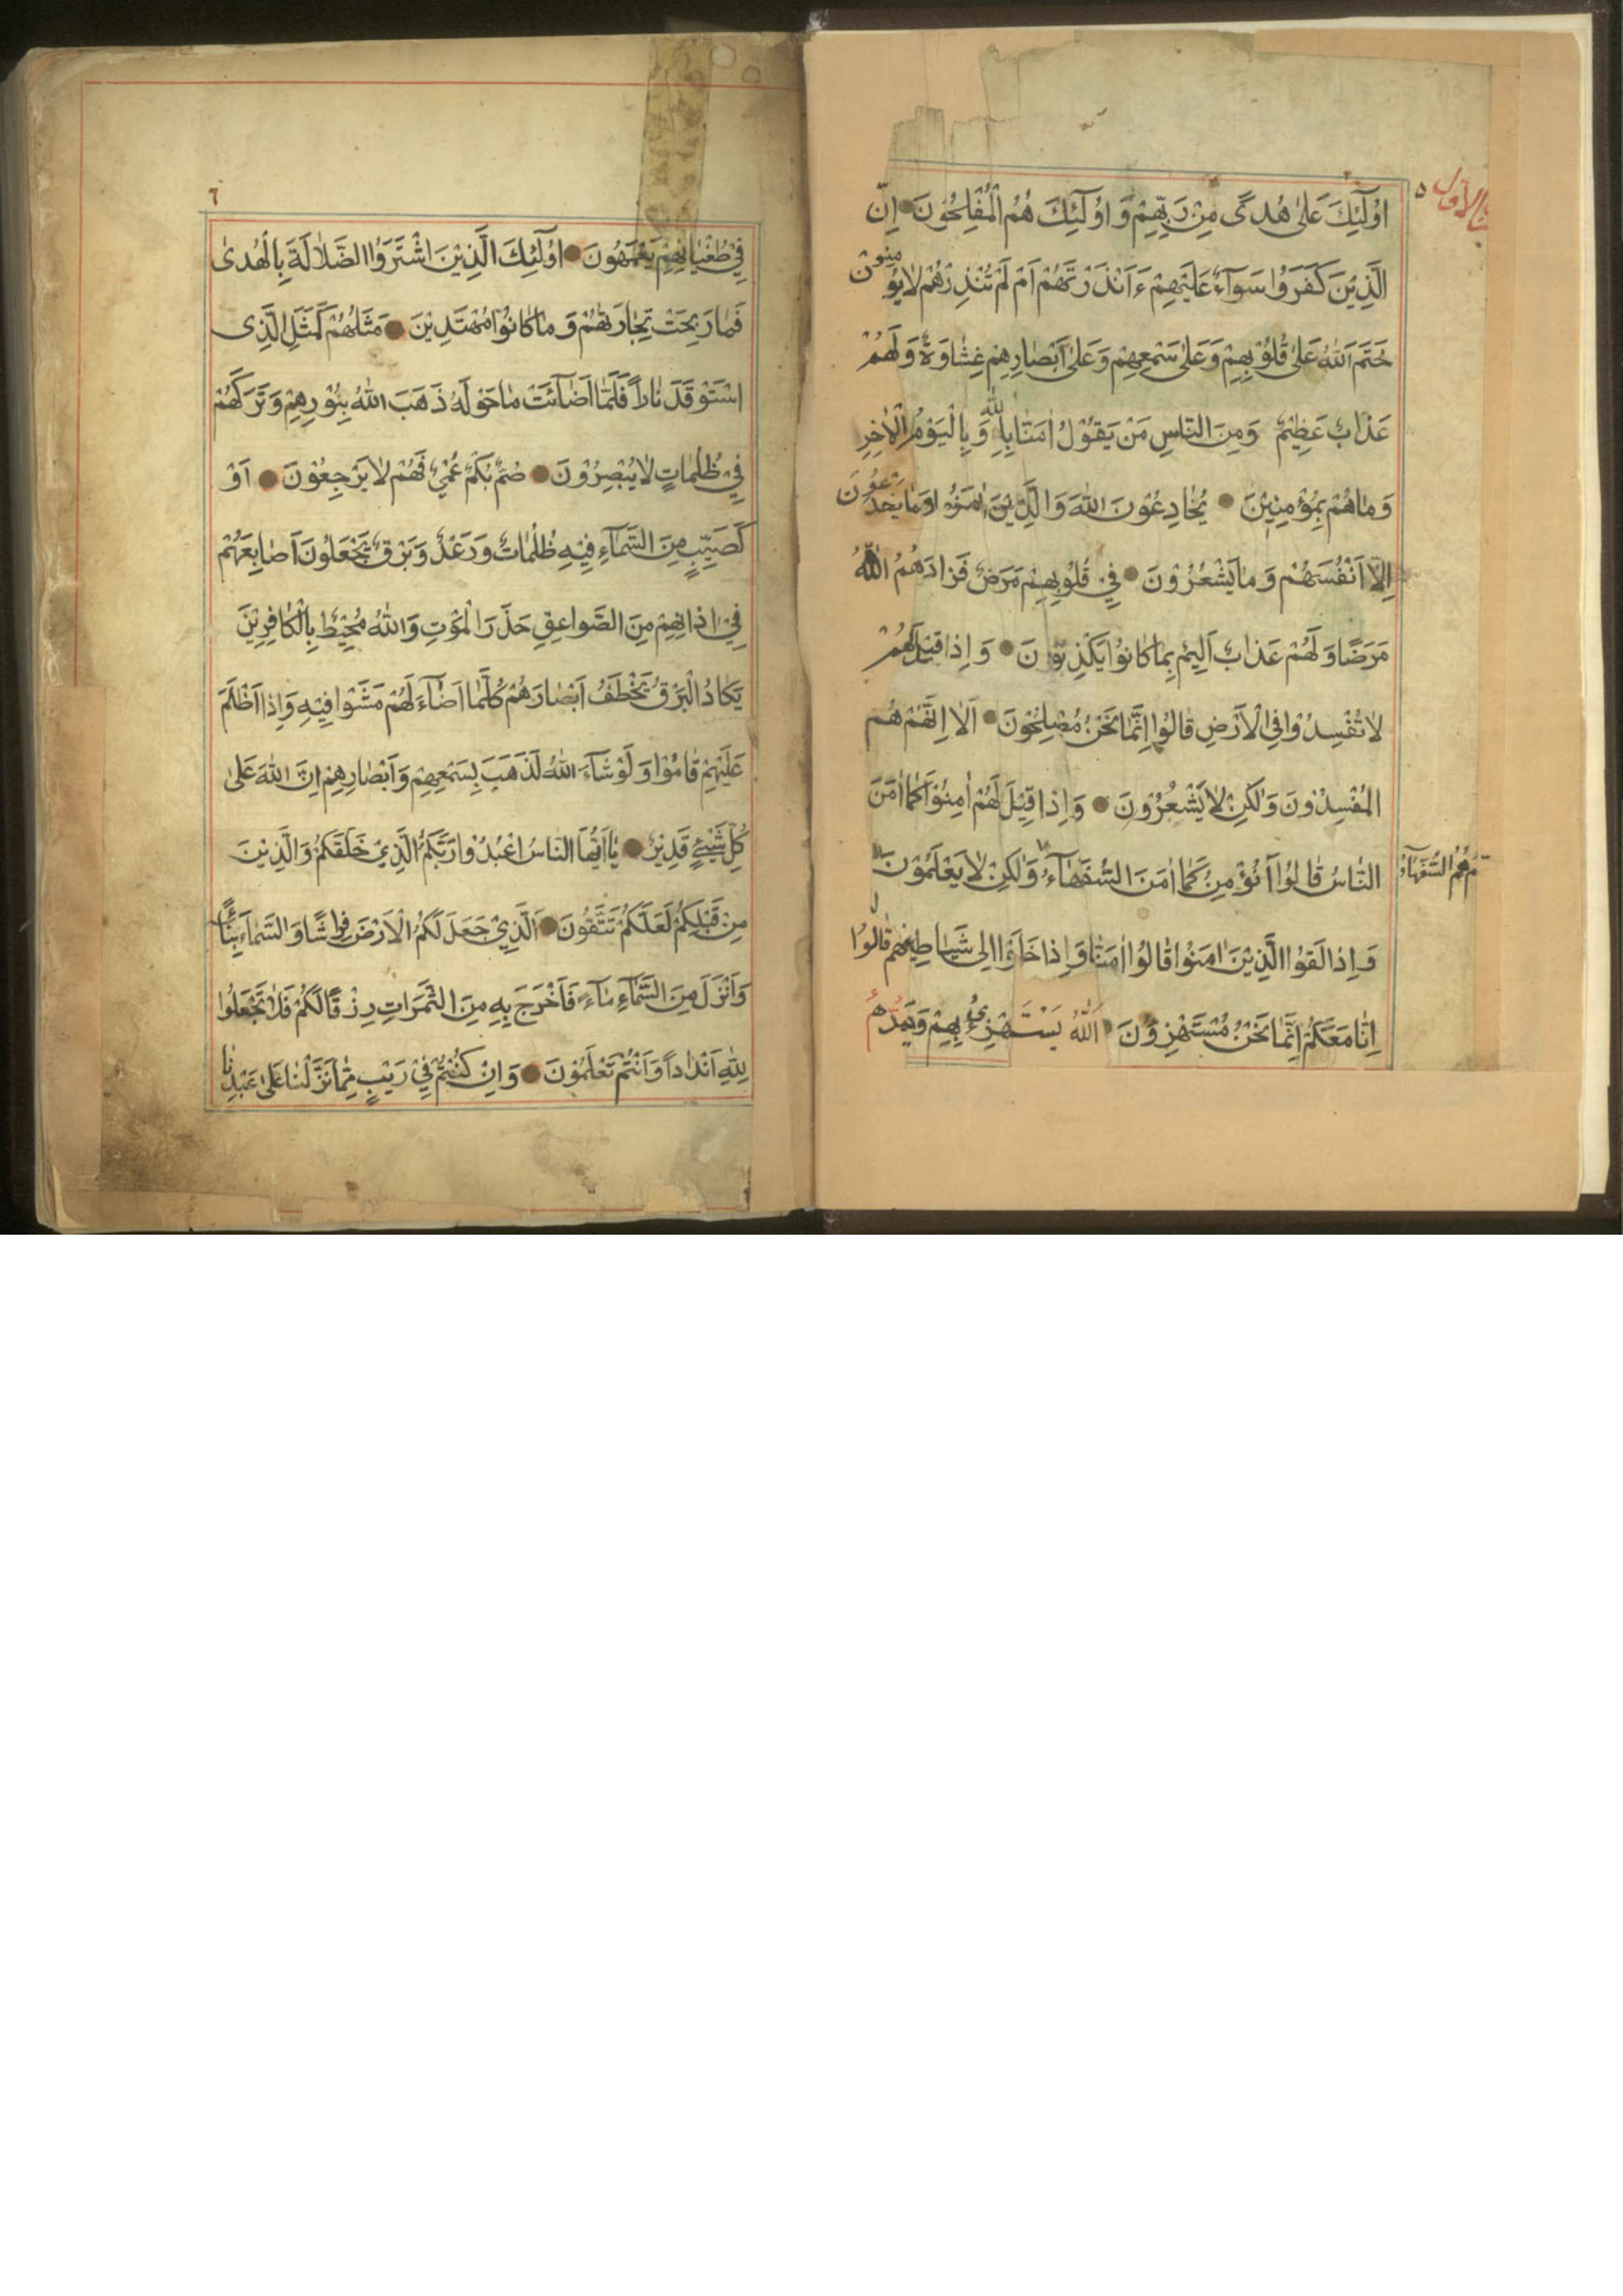 الأول ٥
اُولٰٓئِكَ عَلىٰ هُدىً مِنْ رَبِّهِمْ وَ اُولٰٓئِكَ هُمُ الْمُفْلِحُونَ اِنَّ
الَّذِيْنَ كَفَرُوا سَوَآءٌ عَلَيْهِمْ ءَاَنْذَرْتَهُمْ اَمْ لَمْ تُنْذِرْهُمْ لايُؤْمِنُونَ
خَتَمَ اللهُ عَلىٰ قُلُوْبِهِمْ وَعَلىٰ سَمْعِهِمْ وَعَلىٰ اَبْصٰارِهِمْ غِشٰاوَةٌ وَلَهُمْ
عَذٰابٌ عَظِيْمٌ وَمِنَ النّاسِ مَنْ يَقُوْلُ اٰمَنّٰا بِاللهِ وَبِالْيَوْمِ الْاٰخِرِ
وَمٰاهُمْ بِمُؤْمِنِيْنَ يُخٰادِعُوْنَ اللهَ وَالَّذِيْنَ اٰمَنُوا وَمٰا يَخْدَعُوْنَ
اِلّٓا اَنْفُسَهُمْ وَمٰا يَشْعُرُوْنَ فِيْ قُلُوْبِهِمْ مَرَضٌ فَزٰادَهُمُ اللهُ
مَرَضًا وَلَهُمْ عَذٰابٌ اَلِيْمٌ بِمٰا كٰانُوْا يَكْذِبُوْنَ وَ اِذٰا قِيْلَ لَهُمْ
لٰا تُفْسِدُوْا فِي الْاَرْضِ قٰالُوْا اِنَّمٰا نَحْنُ مُصْلِحُوْنَ اَلٰا اِنَّهُمْ هُم
الْمُفْسِدُوْنَ وَلٰكِنْ لٰا يَشْعُرُوْنَ وَاِذٰا قِيْلَ لَهُمْ اٰمِنُوْا كَمٰا اٰمَنَ
النّٰاسُ قٰالُوْا اَنُؤْمِنُ كَمٰا اٰمَنَ السُّفَهٰآءُ وَلٰكِنْ لٰا يَعْلَمُوْنَ
هُمُ السُّفَهٰآءُ
وَاِذٰا لَقُوا الَّذِيْنَ اٰمَنُوْا قٰالُوْا اٰمَنّٰا وَاِذٰا خَلَوْا اِلىٰ شَيٰاطِيْنِهِمْ قٰالُوْا
اِنّٰا مَعَكُمْ اِنَّمٰا نَحْنُ مُسْتَهْزِؤُنَ اَللهُ يَسْتَهْزِئُ بِهِمْ وَيَمُدُّهُمْ
٦
فِيْ طُغْيٰانِهِمْ يَعْمَهُوْنَ اُولٰٓئِكَ الَّذِيْنَ اشْتَرَوُا الضَّلٰالَةَ بِالْهُدىٰ
فَمٰا رَبِحَتْ تِجٰارَتُهُمْ وَ مٰا كٰانُوْا مُهْتَدِيْنَ مَثَلُهُمْ كَمَثَلِ الَّذِى
اسْتَوْقَدَ نٰاراً فَلَمّٰا اَضٰآئَتْ مٰا حَوْلَهُ ذَهَبَ اللهُ بِنُوْرِهِمْ وَتَرَكَهُمْ
فِيْ ظُلُمٰاتٍ لٰا يُبْصِرُوْنَ صُمٌّ بُكْمٌ عُمْيٌ فَهُمْ لٰا يَرْجِعُوْنَ اَوْ
كَصَيِّبٍ مِنَ السَّمٰآءِ فِيْهِ ظُلُمٰاتٌ وَرَعْدٌ وَبَرْقٌ يَجْعَلُوْنَ اَصٰابِعَهُمْ
فِيْ اٰذٰانِهِمْ مِنَ الصَّوٰاعِقِ حَذَرَ الْمَوْتِ وَاللهُ مُحِيْطٌ بِالْكٰافِرِيْنَ
يَكٰادُ الْبَرْقُ يَخْطَفُ اَبْصٰارَهُمْ كُلَّمٰا اَضٰآءَ لَهُمْ مَشَوْا فِيْهِ وَاِذٰا اَظْلَمَ
عَلَيْهِمْ قٰامُوْا وَلَوْ شٰآءَ اللهُ لَذَهَبَ بِسَمْعِهِمْ وَاَبْصٰارِهِمْ اِنَّ اللهَ عَلىٰ
كُلِّ شَيْئٍ قَدِيْرٌ يٰا اَيُّهَا النّٰاسُ اعْبُدُوْا رَبَّكُمُ الَّذِيْ خَلَقَكُمْ وَالَّذِيْنَ
مِنْ قَبْلِكُمْ لَعَلَّكُمْ تَتَّقُوْنَ اَلَّذِيْ جَعَلَ لَكُمُ الْاَرْضَ فِرٰاشًا وَالسَّمٰاءَ بِنٰآءً
وَاَنْزَلَ مِنَ السَّمٰآءِ مٰآءً فَاَخْرَجَ بِهِ مِنَ الثَّمَرٰاتِ رِزْقًا لَكُمْ فَلٰا تَجْعَلُوْا
لِلّٰهِ اَنْدٰاداً وَاَنْتُمْ تَعْلَمُوْنَ وَاِنْ كُنْتُمْ فِيْ رَيْبٍ مِمّٰا نَزَّلْنٰا عَلىٰ عَبْدِنٰا